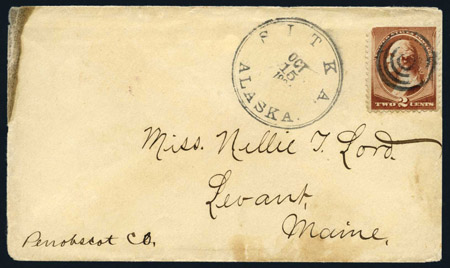 SITKA.
OCT
15
ALASKA.
TWO 2 CENTS
Miss. Nellie T. Lord.
Levant,
Maine.
Penobscot Co.